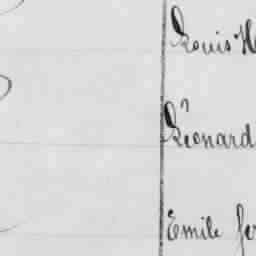 Louis H
Léonard
Emile fer